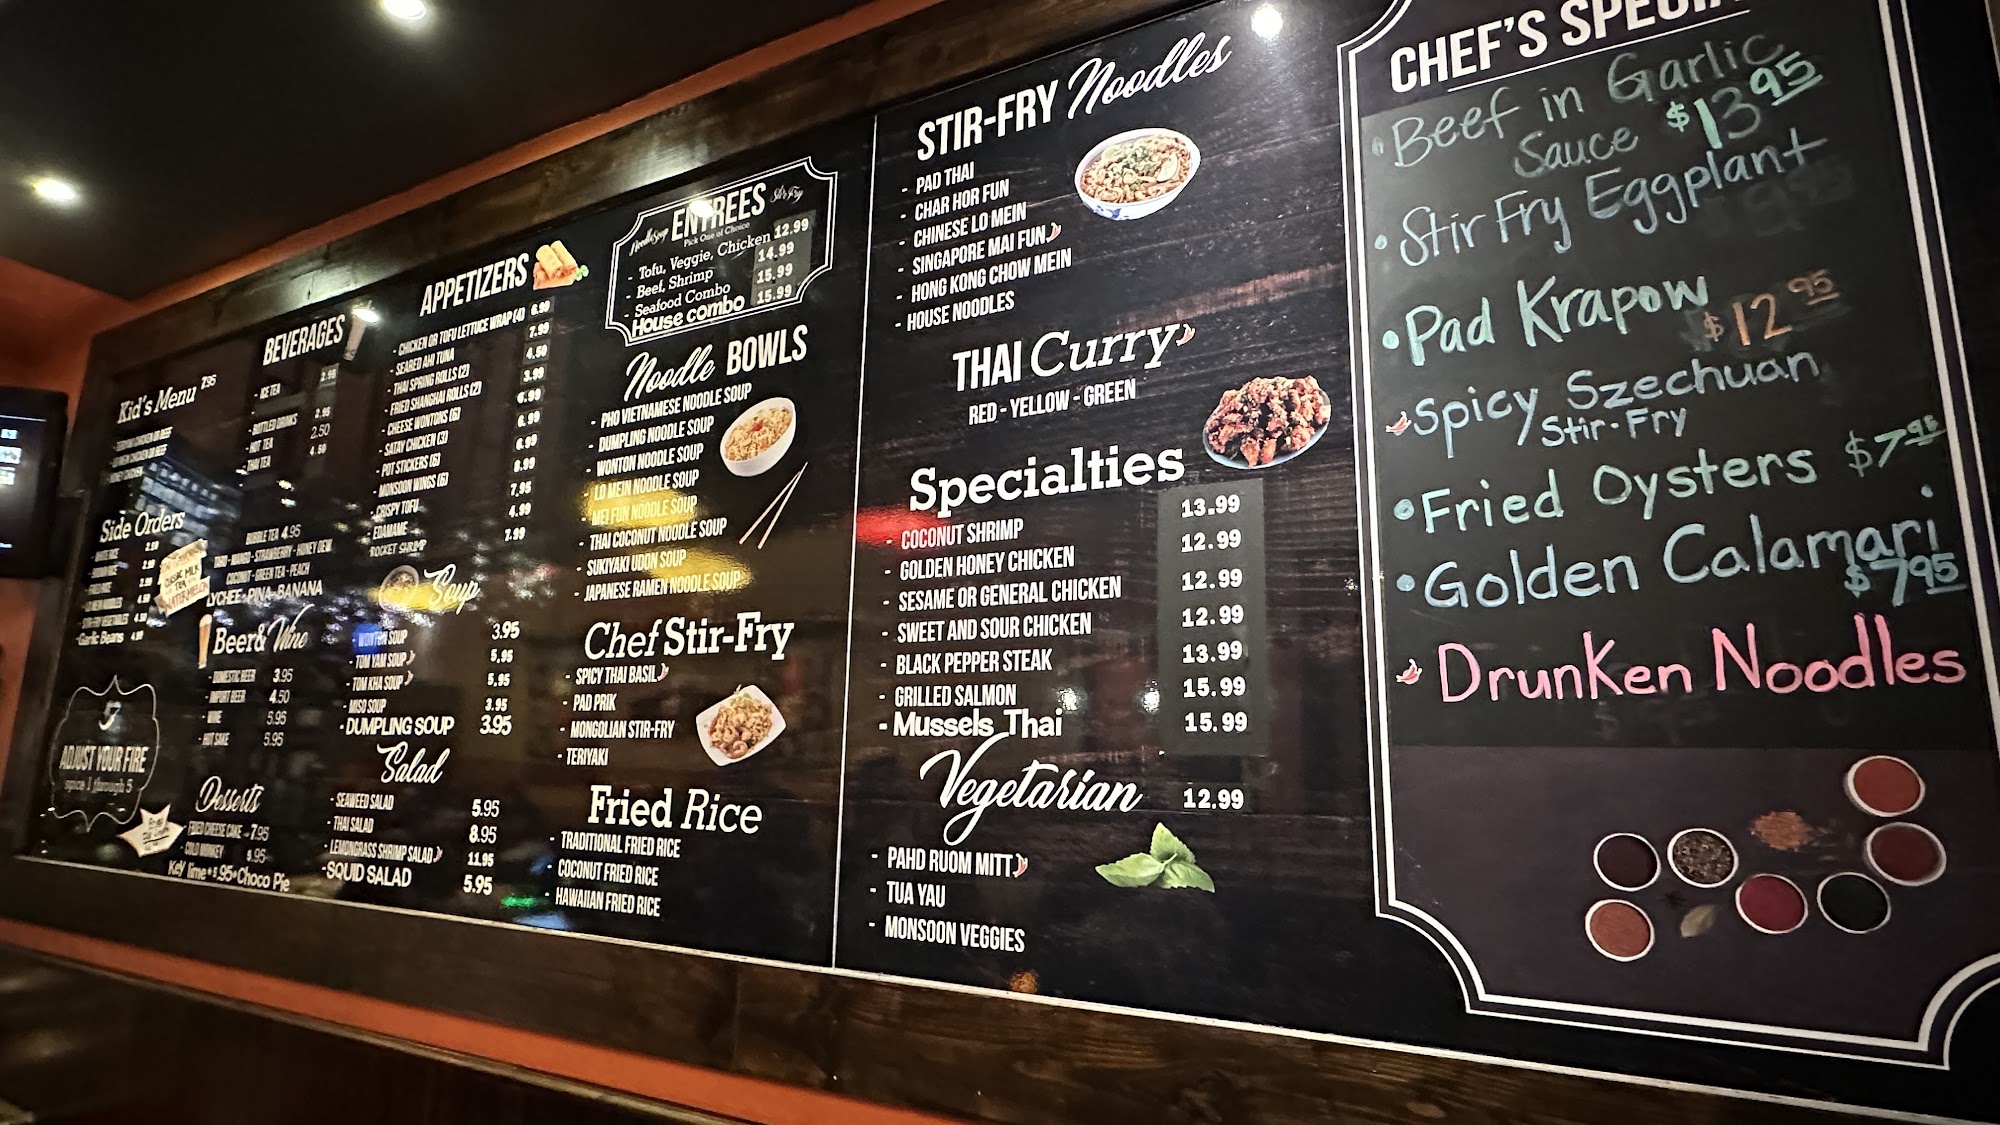 Kid's Menu 7.95
Side Orders
- WHITE RICE 2.50
- BROWN RICE
- FRIED RICE
- LO MEIN NOODLES 4.50
- STIR-FRY VEGETABLES 4.50
- Garlic Beans 4.50
ADJUST YOUR FIRE
spice 1 through 5
BEVERAGES
- ICE TEA 2.95
- BOTTLED DRINKS 2.95
- HOT TEA 2.50
- THAI TEA 4.50
BUBBLE TEA 4.95
TARO - MANGO - STRAWBERRY - HONEY DEW
COCONUT - GREEN TEA - PEACH
LYCHEE - PINA - BANANA
CLASSIC MILK
TEA
WATERMELON
Beer & Wine
- DOMESTIC BEER 3.95
- IMPORT BEER 4.50
- WINE 5.95
- HOT SAKE 5.95
Desserts
- FRIED CHEESE CAKE - 7.95
- COLD MONKEY 5.95
Key lime
Choco Pie
APPETIZERS
- CHICKEN OR TOFU LETTUCE WRAP (4) 6.99
- SEARED AHI TUNA 7.99
- THAI SPRING ROLLS (2) 4.50
- FRIED SHANGHAI ROLLS (2) 3.99
- CHEESE WONTONS (6) 6.99
- SATAY CHICKEN (3) 6.99
- POT STICKERS (6) 6.99
- MONSOON WINGS (6) 8.99
- CRISPY TOFU 7.95
- EDAMAME 4.99
ROCKET SHRIMP 7.99
Soup
- WONTON SOUP 3.95
- TOM YAM SOUP 5.95
- TOM KHA SOUP 5.95
- MISO SOUP 3.95
- DUMPLING SOUP 3.95
Salad
- SEAWEED SALAD 5.95
- THAI SALAD 8.95
- LEMONGRASS SHRIMP SALAD 11.95
- SQUID SALAD 5.95
Noodle Soup ENTREES Stir Fry
Pick One of Choice
- Tofu, Veggie, Chicken 12.99
- Beef, Shrimp 14.99
- Seafood Combo 15.99
House combo 15.99
Noodle BOWLS
- PHO VIETNAMESE NOODLE SOUP
- DUMPLING NOODLE SOUP
- WONTON NOODLE SOUP
- LO MEIN NOODLE SOUP
- MEI FUN NOODLE SOUP
- THAI COCONUT NOODLE SOUP
- SUKIYAKI UDON SOUP
- JAPANESE RAMEN NOODLE SOUP
Chef Stir-Fry
- SPICY THAI BASIL
- PAD PRIK
- MONGOLIAN STIR-FRY
- TERIYAKI
Fried Rice
- TRADITIONAL FRIED RICE
- COCONUT FRIED RICE
- HAWAIIAN FRIED RICE
STIR-FRY Noodles
- PAD THAI
- CHAR HOR FUN
- CHINESE LO MEIN
- SINGAPORE MAI FUN
- HONG KONG CHOW MEIN
- HOUSE NOODLES
THAI Curry
RED - YELLOW - GREEN
Specialties
- COCONUT SHRIMP 13.99
- GOLDEN HONEY CHICKEN 12.99
- SESAME OR GENERAL CHICKEN 12.99
- SWEET AND SOUR CHICKEN 12.99
- BLACK PEPPER STEAK 13.99
- GRILLED SALMON 15.99
- Mussels Thai 15.99
Vegetarian 12.99
- PAHD RUOM MITT
- TUA YAU
- MONSOON VEGGIES
CHEF'S
• Beef in Garlic
Sauce $13.95
• Stir Fry Eggplant
• Pad Krapow
$12.95
Spicy Szechuan
Stir-Fry
• Fried Oysters $7.95
• Golden Calamari
$7.95
Drunken Noodles